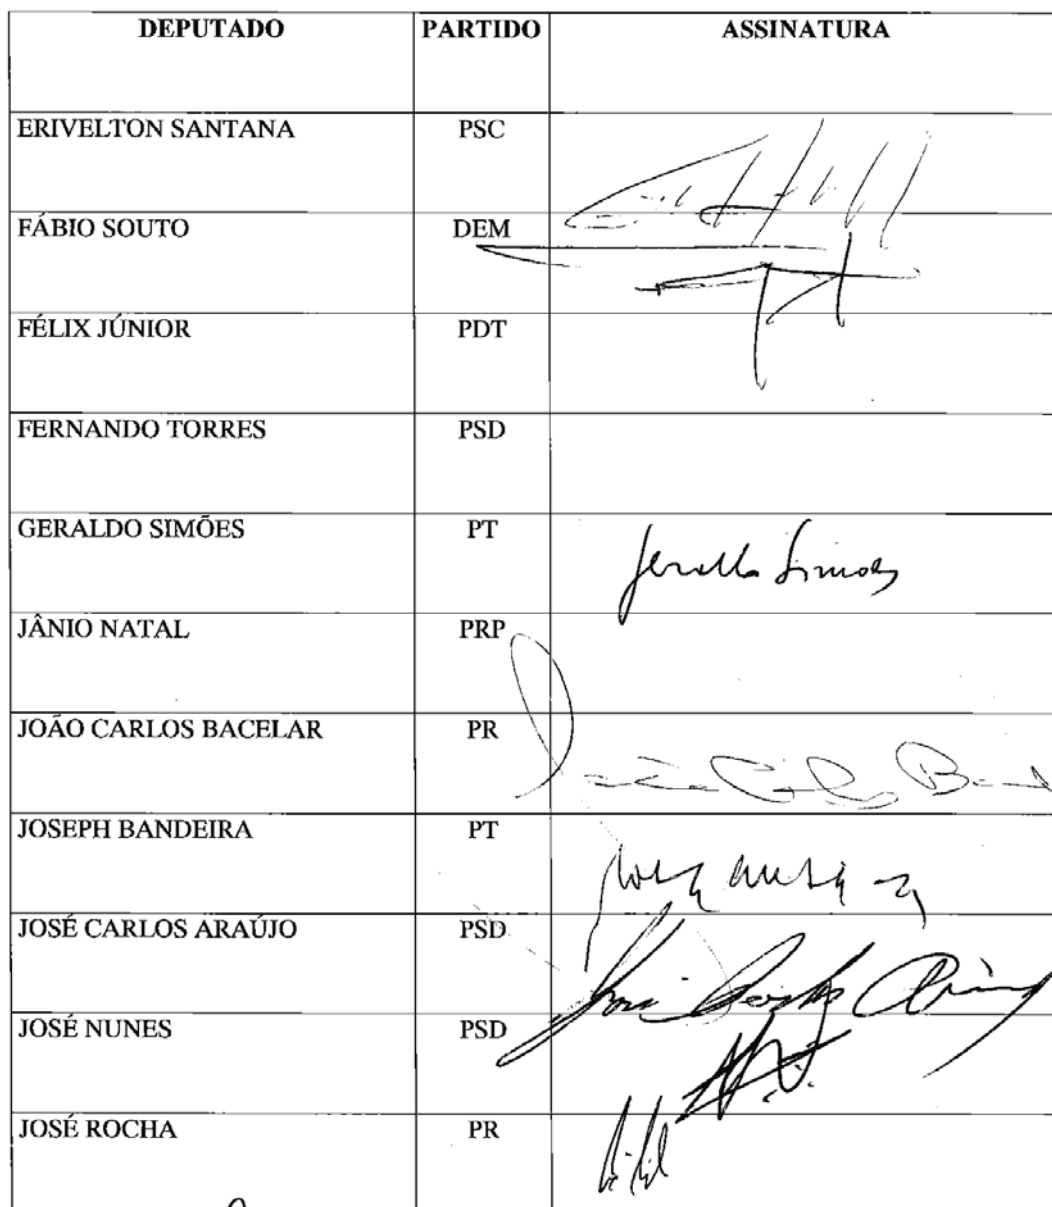 DEPUTADO PARTIDO ASSINATURA
ERIVELTON SANTANA PSC
FÁBIO SOUTO DEM
FÉLIX JÚNIOR PDT
FERNANDO TORRES PSD
GERALDO SIMÕES PT Geraldo Simões
JÂNIO NATAL PRP
JOÃO CARLOS BACELAR PR
JOSEPH BANDEIRA PT
JOSÉ CARLOS ARAÚJO PSD
JOSÉ NUNES PSD
JOSÉ ROCHA PR